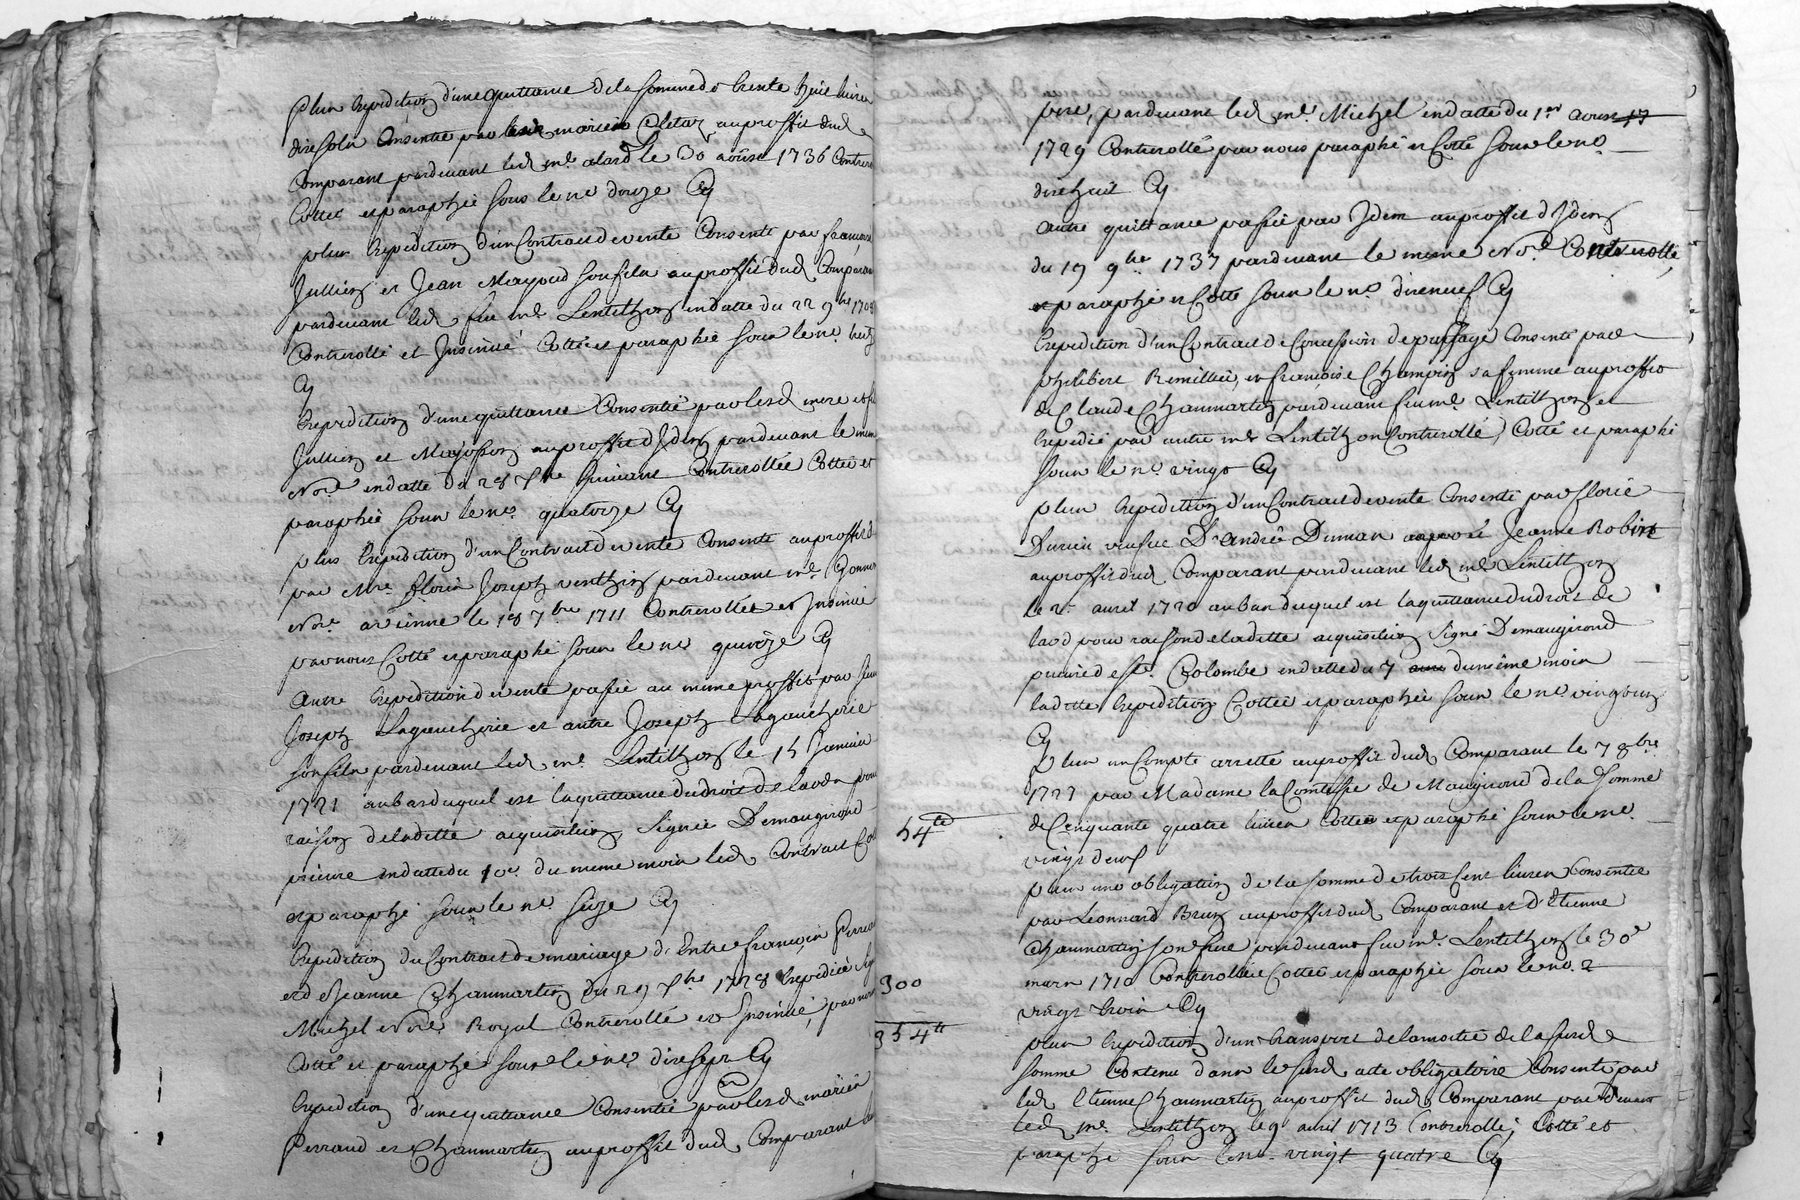 plus Expedition d'une quittance de la somme de trente huit livres
dix sols Consentie par mariée auproffit dud
Comparant pardevant led me alard le 30 aoust 1736 Contre
Cottée et paraphée sous le no douze Cy
plus Expedition d'un Contract de vente Consenti par françois
Jullien et Jean Mayoud son fils auproffit dud Comparant
pardevant led feu me Lentilhon en datte du 22 9bre 1709
Controllé et Insinué Cotté et paraphé sous le no treize
Cy
Expedition d'une quittance Consentie par lesd mere et fils
Jullien et auproffit d'Idem pardevant le meme
Nore en datte du 28 xbre suivant Controllée Cottée et
paraphée sous le no quatorze Cy
plus Expedition d'un Contract de vente Consenti auproffit d
par Mre Joseph pardevant me
Nore a vienne le 18 7bre 1711 Controllée et Insinuée
par nous Cotté et paraphé sous le no quinze Cy
Autre Expedition de vente passée au meme proffit par
Joseph Lagrencherie et autre Joseph Lagrencherie
son fils pardevant led me Lentilhon le 15 Janvier
1721 au bas duquel est la quittance du droit de laods pour
raison de laditte acquisition Signée Demaugirond
prieure en datte du 10e du meme mois led Contract Cot
et paraphé sous le no seize Cy
Expedition du Contract de mariage d'Entre françois Perraud
et de Jeanne Chanmartin du 29 xbre 1728 Expedié Signé
Michel Nore Royal Controllé et Insinué, par nous
Cotté et paraphé sous le no dix sept Cy
Expedition d'une quittance Consentie par lesd mariés
Perraud et Chanmartin auproffit dud Comparant
pere, pardevant led me Michel en datte du 1er avril 17
1729 Controllé par nous paraphé et Cotté sous le no
dix huit Cy
Autre quittance passée par Idem auproffit d'Idem
du 19 9bre 1737 pardevant le meme Nore Controllé,
et paraphé et Cotté sous le no dix neuf Cy
Expedition d'un Contract de Concession de passage Consenti par
philibert Remillier, et francoise Champin sa femme auproffit
de Claude Chanmartin pardevant feu me Lentilhon et
Expedié par autre me Lentilhon Controllé, Cotté et paraphé
sous le no vingt Cy
plus Expedition d'un Contract de vente Consenti par florie
Durieu veufve D'André Dumas Jeanne Robin
auproffit dud Comparant pardevant led me Lentilhon
le 2e avril 1720 au bas duquel est la quittance du droit de
laod pour raison de laditte acquisition Signé Demaugirond
prieure de ste Colombe en datte du 7 du meme mois
laditte Expedition Cottée et paraphée sous le no vingt un
Cy
Plus un Compte arretté auproffit dud Comparant le 7 8bre
1727 par Madame la Comtesse de Maugirond de la somme
54tt
de Cinquante quatre livres Cottée et paraphé sous le no
vingt deux
plus une obligation de la somme de trois Cent livres Consentie
par Leonnard Brun auproffit dud Comparant et d'Etienne
Chanmartin son frere pardevant feu me Lentilhon le 30e
300
mars 1710 Controllée Cottée et paraphée sous le no
vingt trois Cy
354tt
plus Expedition d'un transport de la moitié de la susd
somme Contenu dans le susd acte obligatoire Consenti par
led Etienne Chanmartin auproffit dud Comparant par devant
led me Lentilhon le 9 avril 1713 Controllé; Cotté et
paraphé sous le no vingt quatre Cy